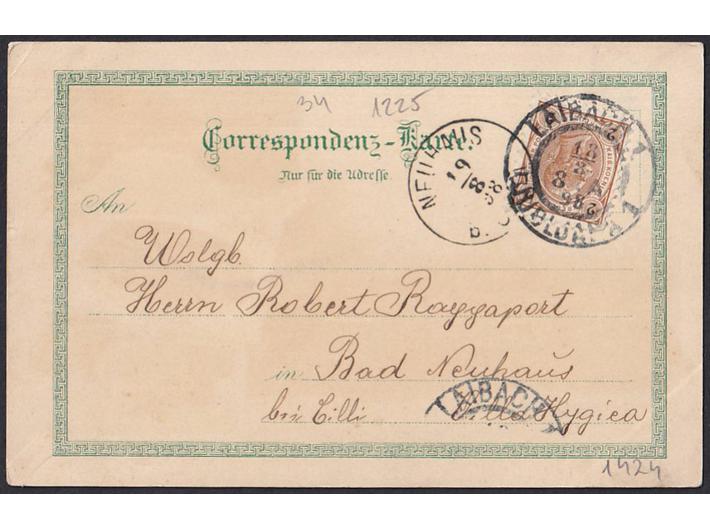 34 1225
Correspondenz-Karte.
Nur für die Adresse.
An
NEUHAUS
19/8 98
LAIBACH 1
18 8 98
LJUBLJANA 1
Wolgb.
Herrn Robert Raggaport
in Bad Neuhaus
bei Cilli Villa Hygica
LAIBACH
1424